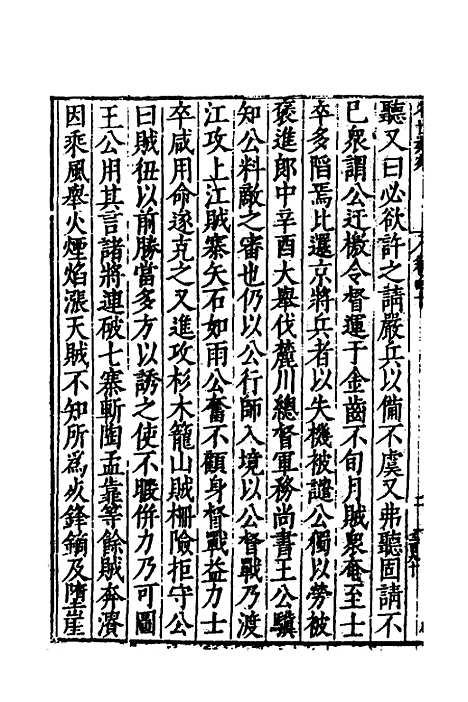 聽又曰必欲許之請嚴兵以備不虞又弗聽固請不
已衆謂公迂檄令督運于金齒不旬月賊衆奄至士
卒多陷焉比還京將兵者以失機被譴公獨以勞被
褒進郎中辛酉大舉伐麓川總督軍務尚書王公驥
知公料敵之審也仍以公行師入境以公督戰乃渡
江攻上江賊寨矢石如雨公奮不顧身督戰益力士
卒咸用命遂克之又進攻杉木籠山賊柵險拒守公
曰賊狃以前勝當多方以誘之使不暇併力乃可圖
王公用其言諸將連破七寨斬陶孟靠等餘賊奔潰
因乘風舉火煙焰漲天賊不知所為火鋒鏑及墮崖